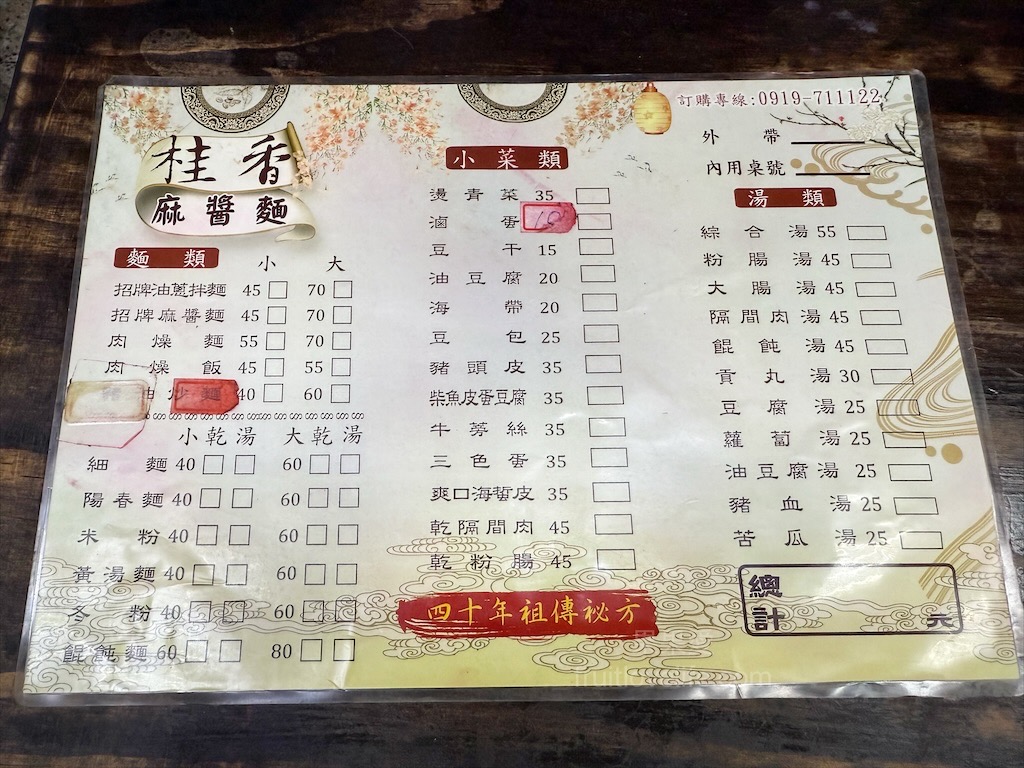 桂香
麻醬麵
麵類 小 大
招牌油蔥拌麵 45 70
招牌麻醬麵 45 70
肉燥麵 55 70
肉燥飯 45 55
油炒麵 40 60
小乾湯 大乾湯
細麵 40 60
陽春麵 40 60
米粉 40 60
黃湯麵 40 60
冬粉 40 60
餛飩麵 60 80
小菜類
燙青菜 35
滷蛋
豆干 15
油豆腐 20
海帶 20
豆包 25
豬頭皮 35
柴魚皮蛋豆腐 35
牛蒡絲 35
三色蛋 35
爽口海蜇皮 35
乾隔間肉 45
乾粉腸 45
四十年祖傳祕方
訂購專線:0919-711122
外帶
內用桌號
湯類
綜合湯 55
粉腸湯 45
大腸湯 45
隔間肉湯 45
餛飩湯 45
貢丸湯 30
豆腐湯 25
蘿蔔湯 25
油豆腐湯 25
豬血湯 25
苦瓜湯 25
總計 元